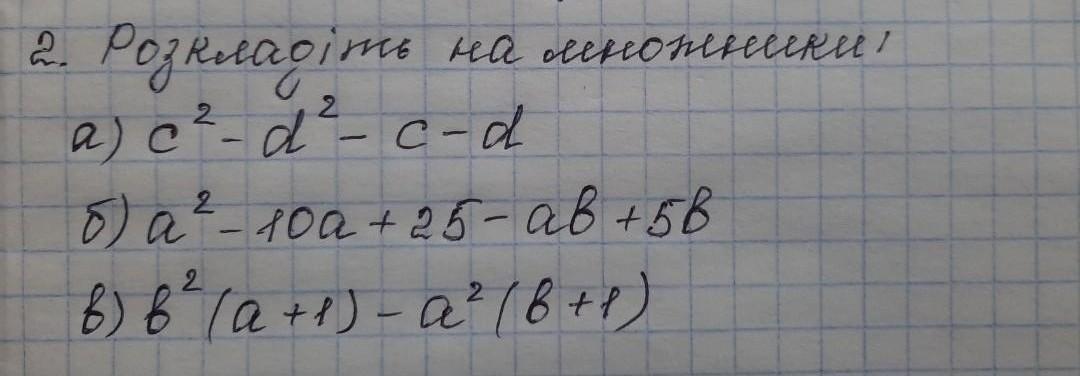 2. Розкладіть на множники:
а) c² - d² - c - d
б) a² - 10a + 25 - ab + 5b
в) b² (a + 1) - a² (b + 1)